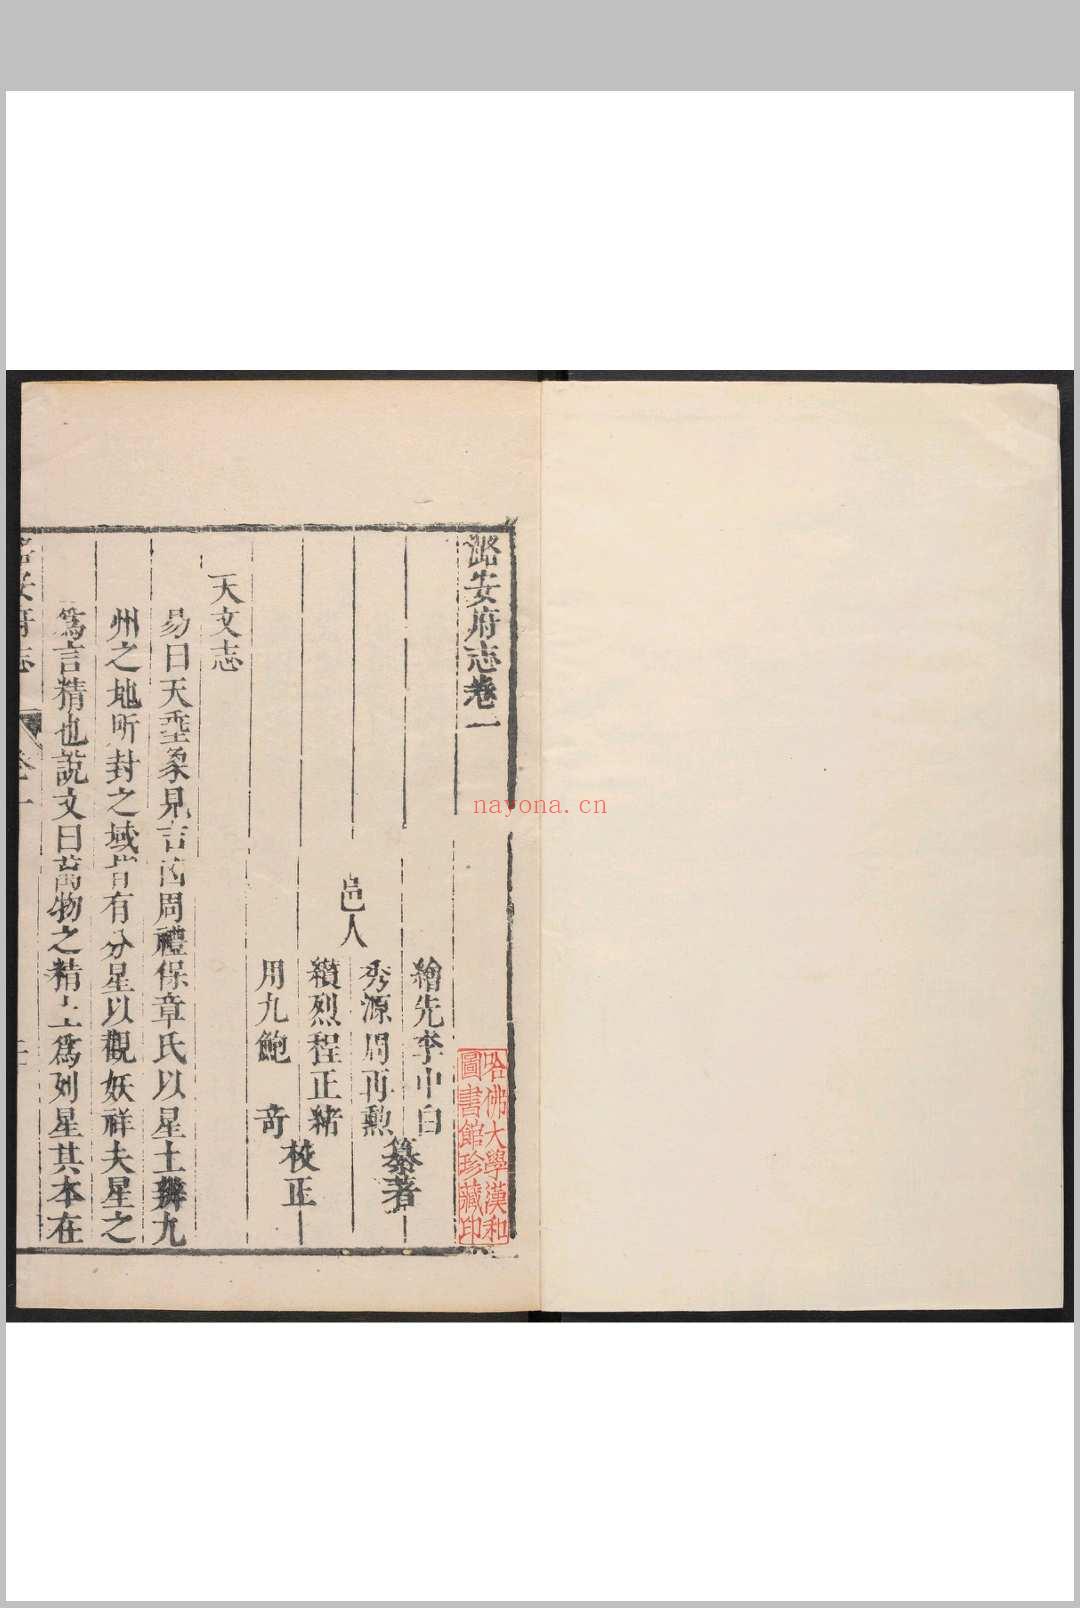 潞安府志卷一
繪先李中白
秀源周再勲
纂著
邑人
纘烈程正緒
用九鮑　奇
校正
天文志
易曰天垂象見吉凶周禮保章氏以星土辨九
州之地所封之域皆有分星以觀妖祥夫星之
爲言精也說文曰萬物之精上爲列星其本在
安府志
卷一
哈佛大學漢和
圖書館珍藏印
nayona.cn